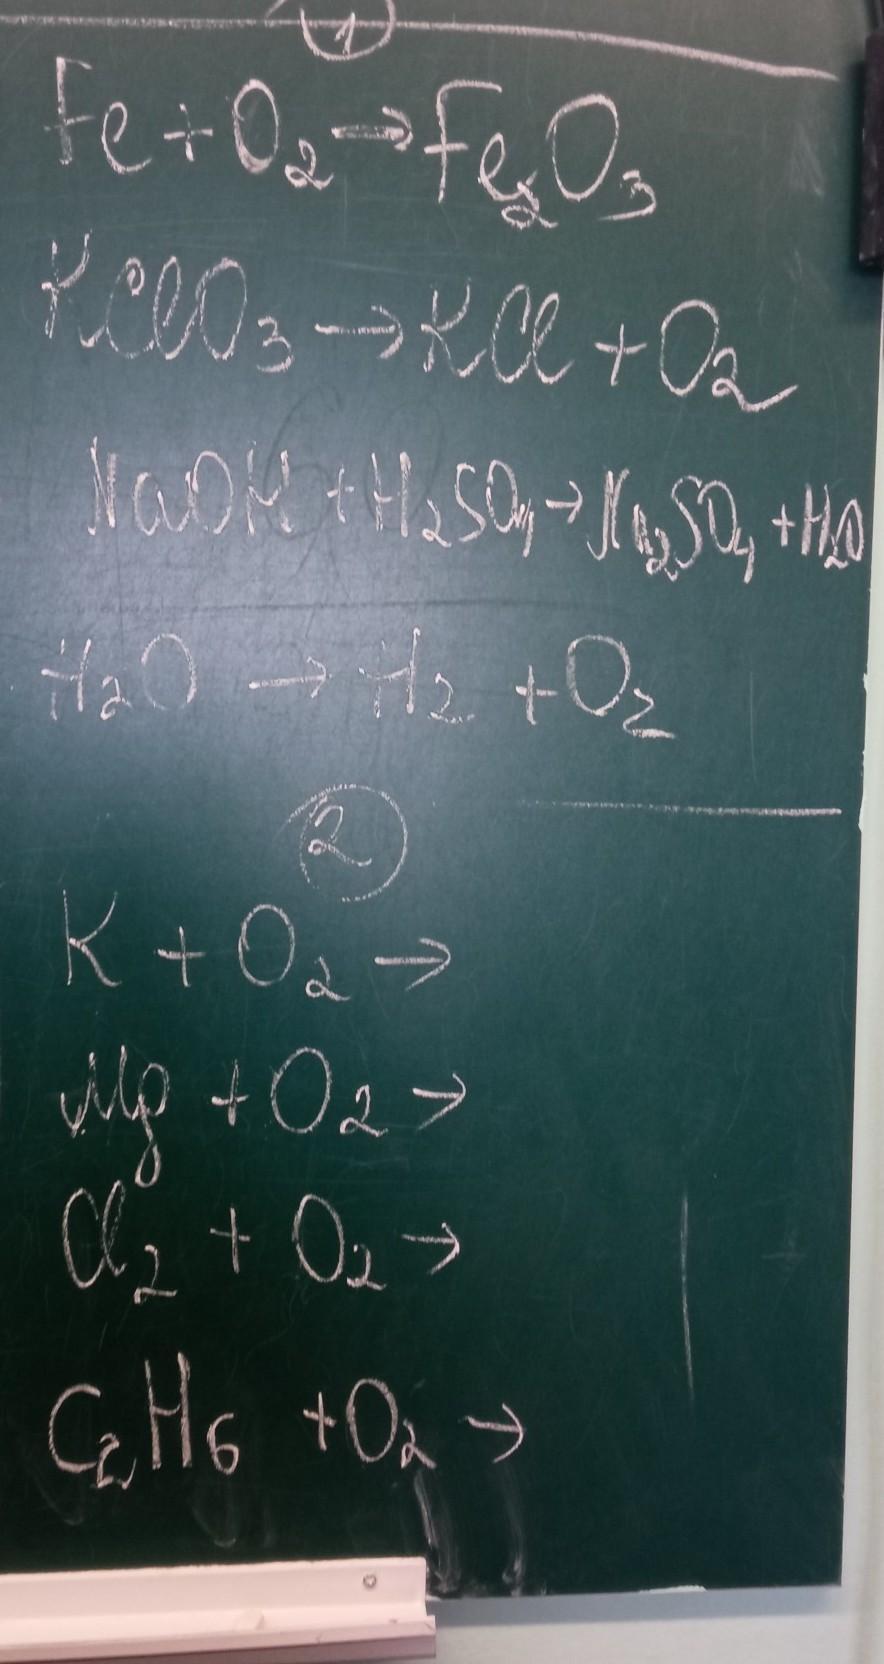 1
Fe + O₂ → Fe₂O₃
KClO₃ → KCl + O₂
NaOH + H₂SO₄ → Na₂SO₄ + H₂O
H₂O → H₂ + O₂
2
K + O₂ →
Mg + O₂ →
Cl₂ + O₂ →
C₂H₆ + O₂ →